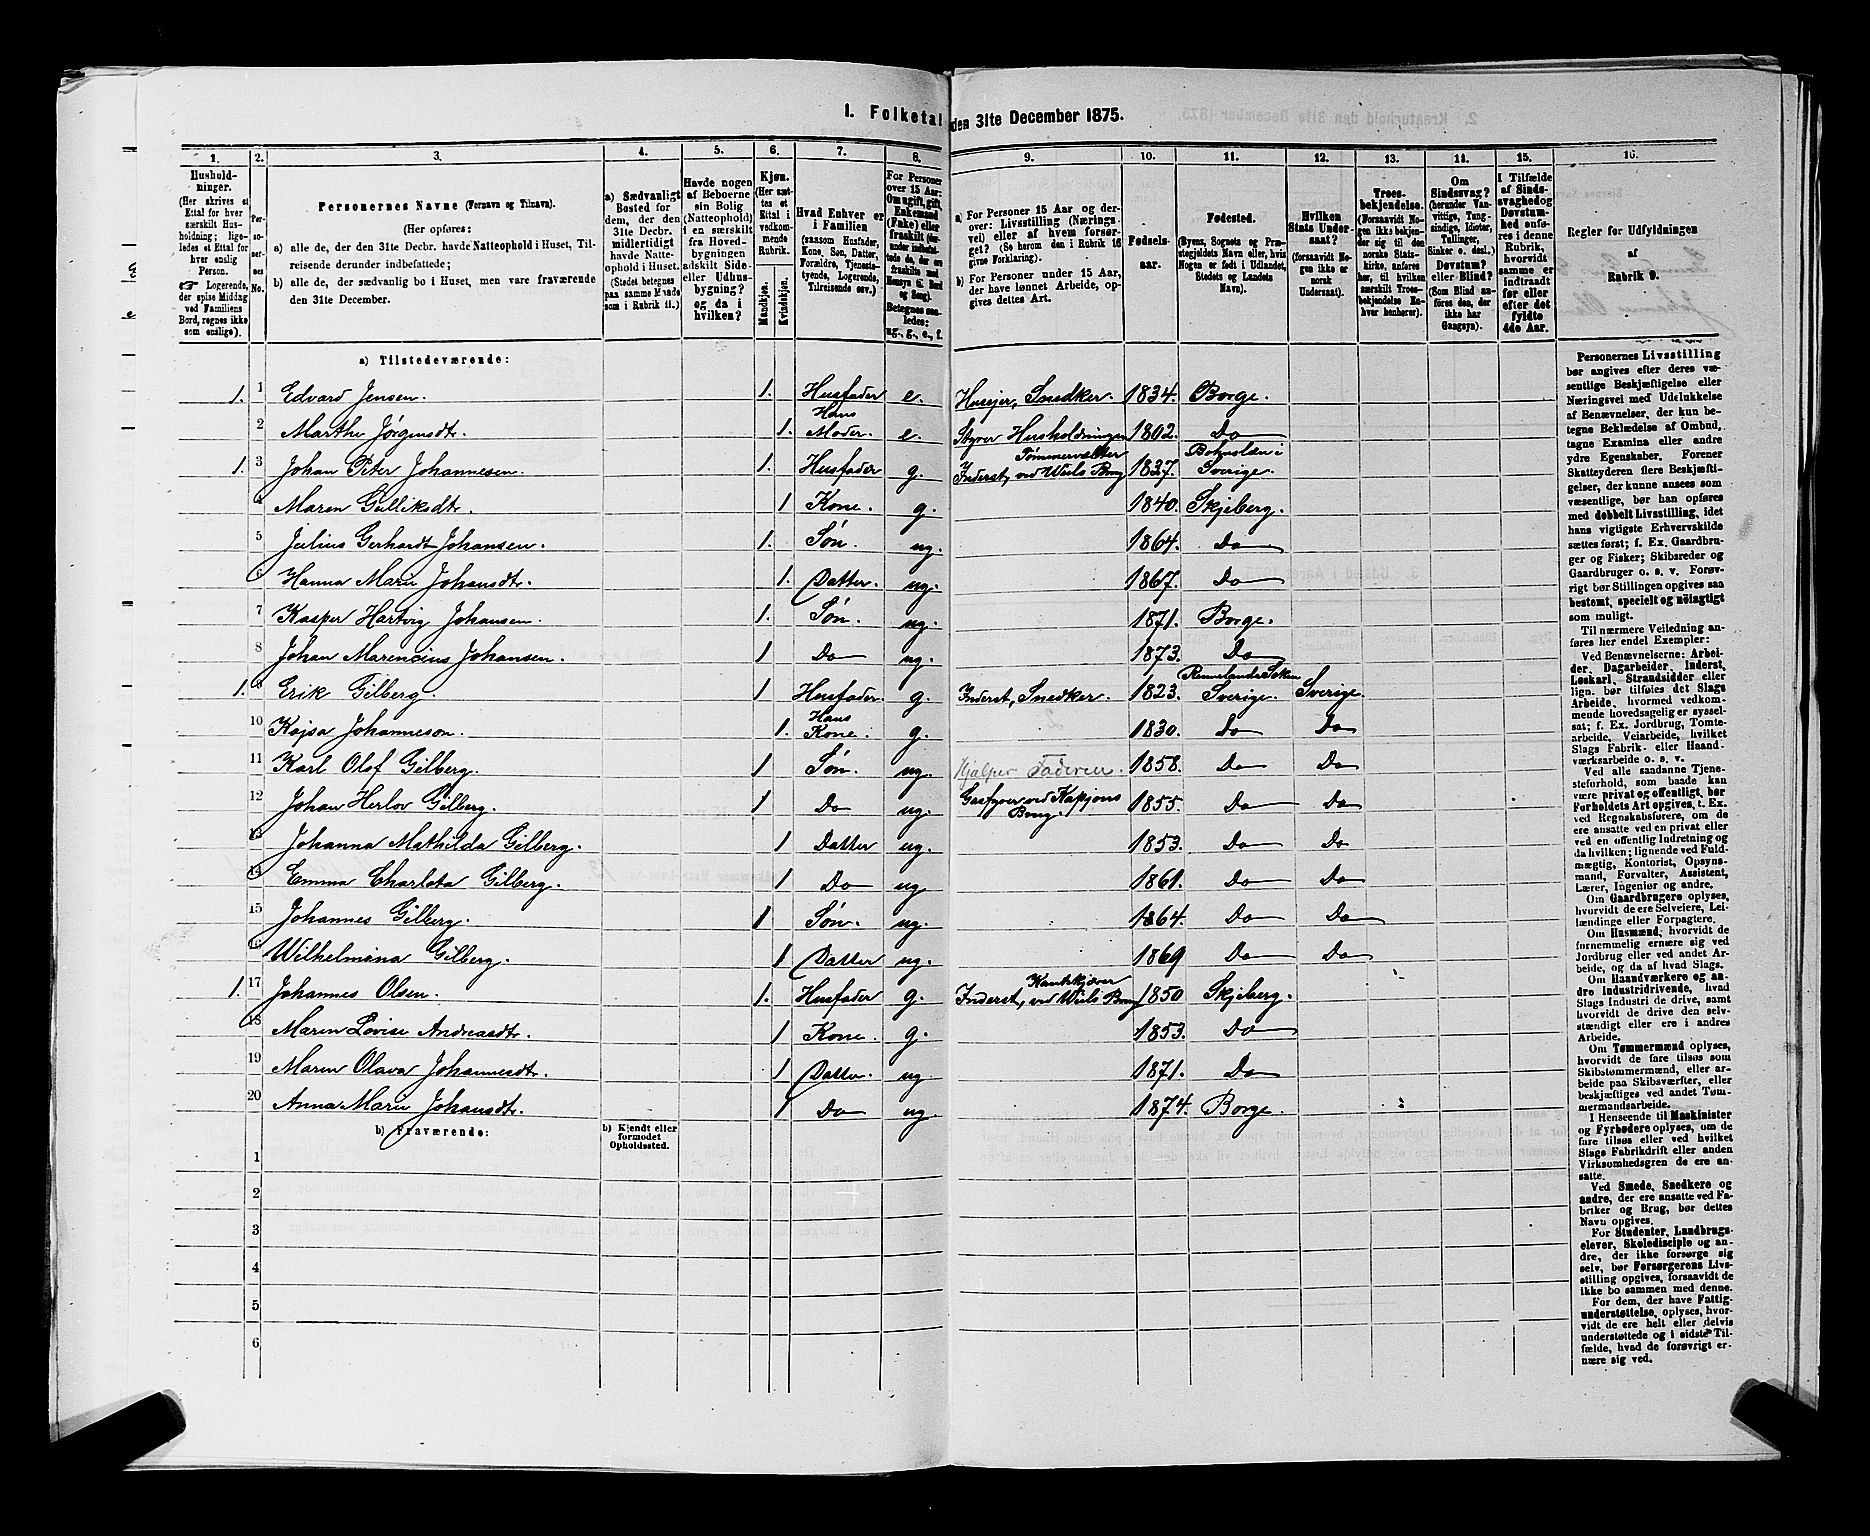 1. Folketal den 31te December 1875.
1. 2. 3. 4. 5. 6. 7. 8. 9. 10. 11. 12. 13. 14. 15. 16.
Hushold-
ninger.
(Her skrives et
Ettal for hver
særskilt Hus-
holdning; lige-
ledes et Ettal for
hver enslig
Person.
Logerende,
der spise Middag
ved Familiens
Bord, regnes ikke
som enslige).
Per-
so-
ner-
nes
No.
Personernes Navne (Fornavn og Tilnavn).
(Her opføres:
a) alle de, der den 31te Decbr. havde Natteophold i Huset, Til-
reisende derunder indbefattede;
b) alle de, der sædvanlig bo i Huset, men vare fraværende
den 31te December.
a) Sædvanligt
Bosted for
dem, der den
31te Decbr.
midlertidigt
havde Natte-
ophold i Huset.
(Stedet betegnes
paa samme Maade
som i Rubrik 11.)
Havde nogen
af Beboerne
sin Bolig
(Natteophold)
i en særskilt
fra Hoved-
bygningen
adskilt Side-
eller Udhus-
bygning?
og da i
hvilken?
Kjøn.
(Her sæt-
tes et
Ettal i
vedkom-
mende
Rubrik.
Mandkjøn.
Kvindekjøn.
Hvad Enhver er
i Familien
(saasom Husfader,
Kone, Søn, Datter,
Forældre, Tjeneste-
tyende, Logerende,
Tilreisende osv.)
For Personer
over 15 Aar:
Om ugift, gift,
Enkemand
(Enke) eller
fraskilt
Betegnes saa-
ledes:
ug., g., e., f.
a) For Personer 15 Aar og der-
over: Livsstilling (Nærings-
vei) eller af hvem forsør-
get? (Se herom den i Rubrik 16
givne Forklaring).
b) For Personer under 15 Aar,
der have lønnet Arbeide, op-
gives dettes Art.
Fødsels-
aar.
Fødested.
(Byens, Sognets og Præ-
stegjeldets Navn eller, hvis
Nogen er født i Udlandet,
Stedets og Landets
Navn).
Hvilken
Stats Under-
saat?
(forsaavidt No-
gen ikke er
norsk
Undersaat).
Troes-
bekjendelse.
(Forsaavidt No-
gen ikke bekjen-
der sig til den
norske Stats-
kirke, anføres
her, til hvilken
særskilt Troes-
bekjendelse En-
hver henhører).
Om
Sindssvag?
(herunder Van-
vittige, Tung-
sindige, Idioter,
Tullinger,
Sinker o. desl.)
Døvstum?
eller Blind?
(Som Blind an-
føres den, der
ikke har
Gangsyn).
I Tilfælde
af Sinds-
svaghed og
Døvstum-
hed anfø-
res i denne
Rubrik,
hvorvidt
samme er
indtraadt
før eller
efter det
fyldte
4de Aar.
Regler før Udfyldningen
af
Rubrik 9.
a) Tilstedeværende:
1. 1 Edvard Jensen. 1. Husfader e. Huseier, Snedker. 1834. Borge.
2 Marthe Jørgensdtr. 1. Hans Moder. e. Styrer Husholdningen 1802. Do
1. 3 Johan Peter Johannesen. 1. Husfader g. Inderst, Tømmervælter ved Wiels Brug 1837. Bohuslän i Sverige.
4 Maren Gulliksdtr. 1 Kone. g. 1840. Skjeberg.
5 Julius Gerhardt Johansen. 1. Søn. ug. 1864. Do
6 Hanna Marie Johansdtr. 1. Datter. ug. 1867. Do
7 Kasper Hartvig Johansen. 1. Søn. ug. 1871. Borge.
8 Johan Marencius Johansen. 1 Do ug. 1873. Do
1. 9 Erik Gilberg. 1 Husfader g. Inderst, Snedker. 1823. Sverige. Sverige
10 Kajsa Johanneson. 1. Hans Kone. g. 1830. Do Do
11 Karl Olof Gilberg. 1 Søn. ug. Hjælper Faderen. 1858. Do Do
12 Johan Herlov Gilberg. 1 Do ug. Brug. 1855. Do Do
13 Johanna Mathilda Gilberg. 1 Datter ug. 1853. Do Do
14 Emma Charlota Gilberg. 1 Do ug. 1861. Do Do
15 Johannes Gilberg. 1 Søn. ug. 1864. Do Do
16 Wilhelmina Gilberg. 1 Datter ug. 1869 Do Do
1. 17 Johannes Olsen. 1. Husfader g. Inderst, Kantskjærer ved Wiels Brug 1850 Skjeberg.
18 Maren Lovise Andreasdtr. 1 Kone. g. 1853. Do
19 Maren Olava Johannesdtr. 1 Datter. ug 1871. Do
20 Anna Marie Johansdtr. 1 Do ug. 1874. Borge.
b) Fraværende:
b) Kjendt eller
formodet
Opholdssted.
1
2
3
4
5
6
Personernes Livsstilling
bør angives efter deres væ-
sentlige Beskjæftigelse eller
Næringsvei med Udelukkelse
af Benævnelser, der kun be-
tegne Beklædelse af Ombud,
tagne Examina eller andre
ydre Egenskaber. Forener
Skatteyderen flere Beskjæfti-
gelser, der kunne ansees som
væsentlige, bør han opføres
med dobbelt Livsstilling, idet
hans vigtigste Erhvervskilde
sættes først; f. Ex. Gaardbru-
ger og Fisker; Skibsreder og
Gaardbruger o. s. v. Forøv-
rigt bør Stillingen opgives saa
bestemt, specielt og nöiagtigt
som muligt.
Til nærmere Veiledning an-
føres her endel Exempler:
Ved Benævnelserne: Arbei-
der, Dagarbeider, Inderst,
Løskarl, Strandsidder eller
lign. bør tilføies det Slags
Arbeide, hvormed vedkom-
mende hovedsagelig er syssel-
sat; f. Ex. Jordbrug, Tomte-
arbeide, Veiarbeide, hvilket
Slags Fabrik- eller Haand-
værksarbeide o. s. v.
Ved alle saadanne Tjene-
steforhold, som baade kan
være privat og offentligt, bør
Forholdets Art opgives, t. Ex.
ved Regnskabsførere, om de
ere ansatte ved en privat eller
ved en offentlig Indretning og
da hvilken; lignende ved Fuld-
mægtig, Kontorist, Opsyns-
mand, Forvalter, Assistent,
Lærer, Ingeniør og andre.
Om Gaardbrugere oplyses,
hvorvidt de ere Selveiere, Lei-
lændinge eller Forpagtere.
Om Husmænd, hvorvidt de
fornemmelig ernære sig ved
Jordbrug eller ved andet Ar-
beide, og da af hvad Slags.
Om Haandværkere og an-
dre Industridrivende, hvad
Slags Industri de drive, samt
hvorvidt de drive den selv-
stændigt eller ere i andres
Arbeide.
Om Tømmermænd oplyses,
hvorvidt de fare tilsøs som
Skibstømmermænd, eller ar-
beide paa Skibsværfter, eller
beskjæftiges ved andet Tøm-
mermandsarbeide.
I Henseende til Maskinister
og Fyrbødere oplyses, om de
fare tilsøs eller ved hvilket
Slags Fabrikdrift eller anden
Virksomhedsgren de ere an-
satte.
Ved Smede, Snedkere og
andre, der ere ansatte ved Fa-
briker og Brug, bør dettes
Navn opgives.
For Studenter, Landbrugs-
elever, Skoledisciple og an-
dre, der ikke forsørge sig
selv, bør Forsørgerens Livs-
stilling opgives, forsaavidt de
ikke bo sammen med denne.
For dem, der have Fattig-
understøttelse, oplyses, hvor-
vidt de ere helt eller delvis
understøttede og i sidste Til-
fælde, hvad de forøvrigt er-
nære sig ved.